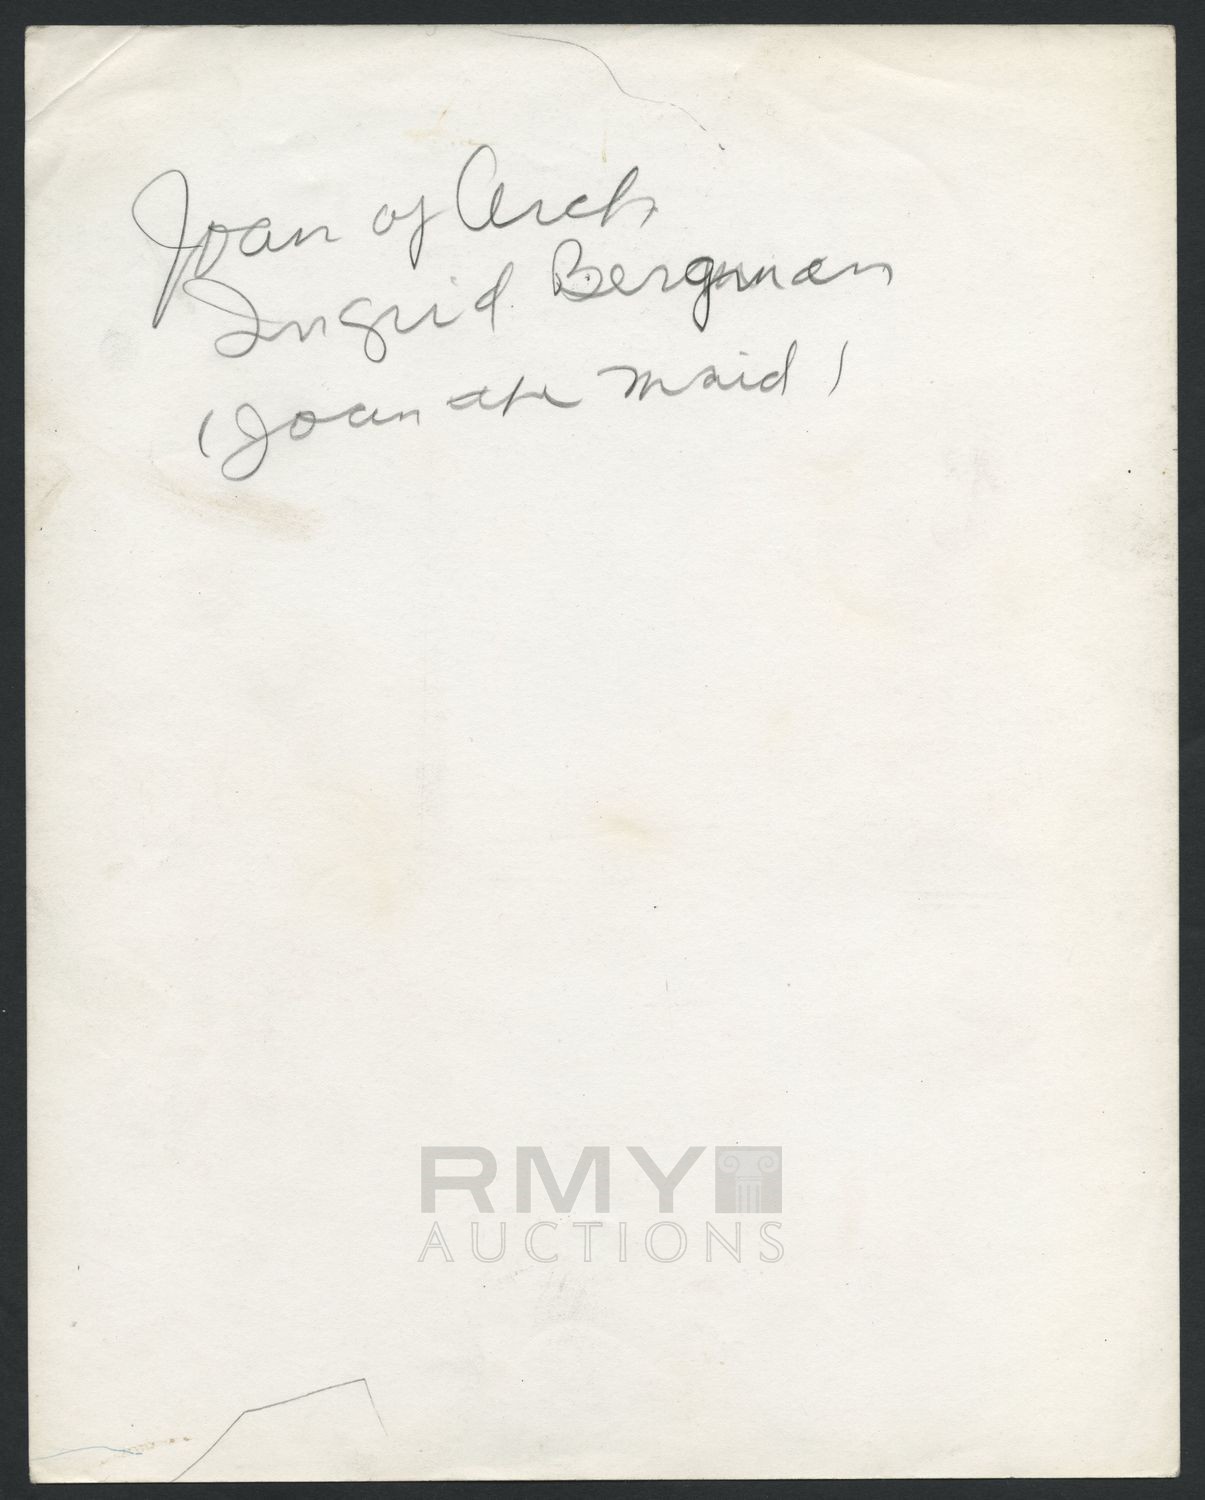 Joan of Arch
Ingrid Bergman
(Joan the Maid)
RMY
AUCTIONS